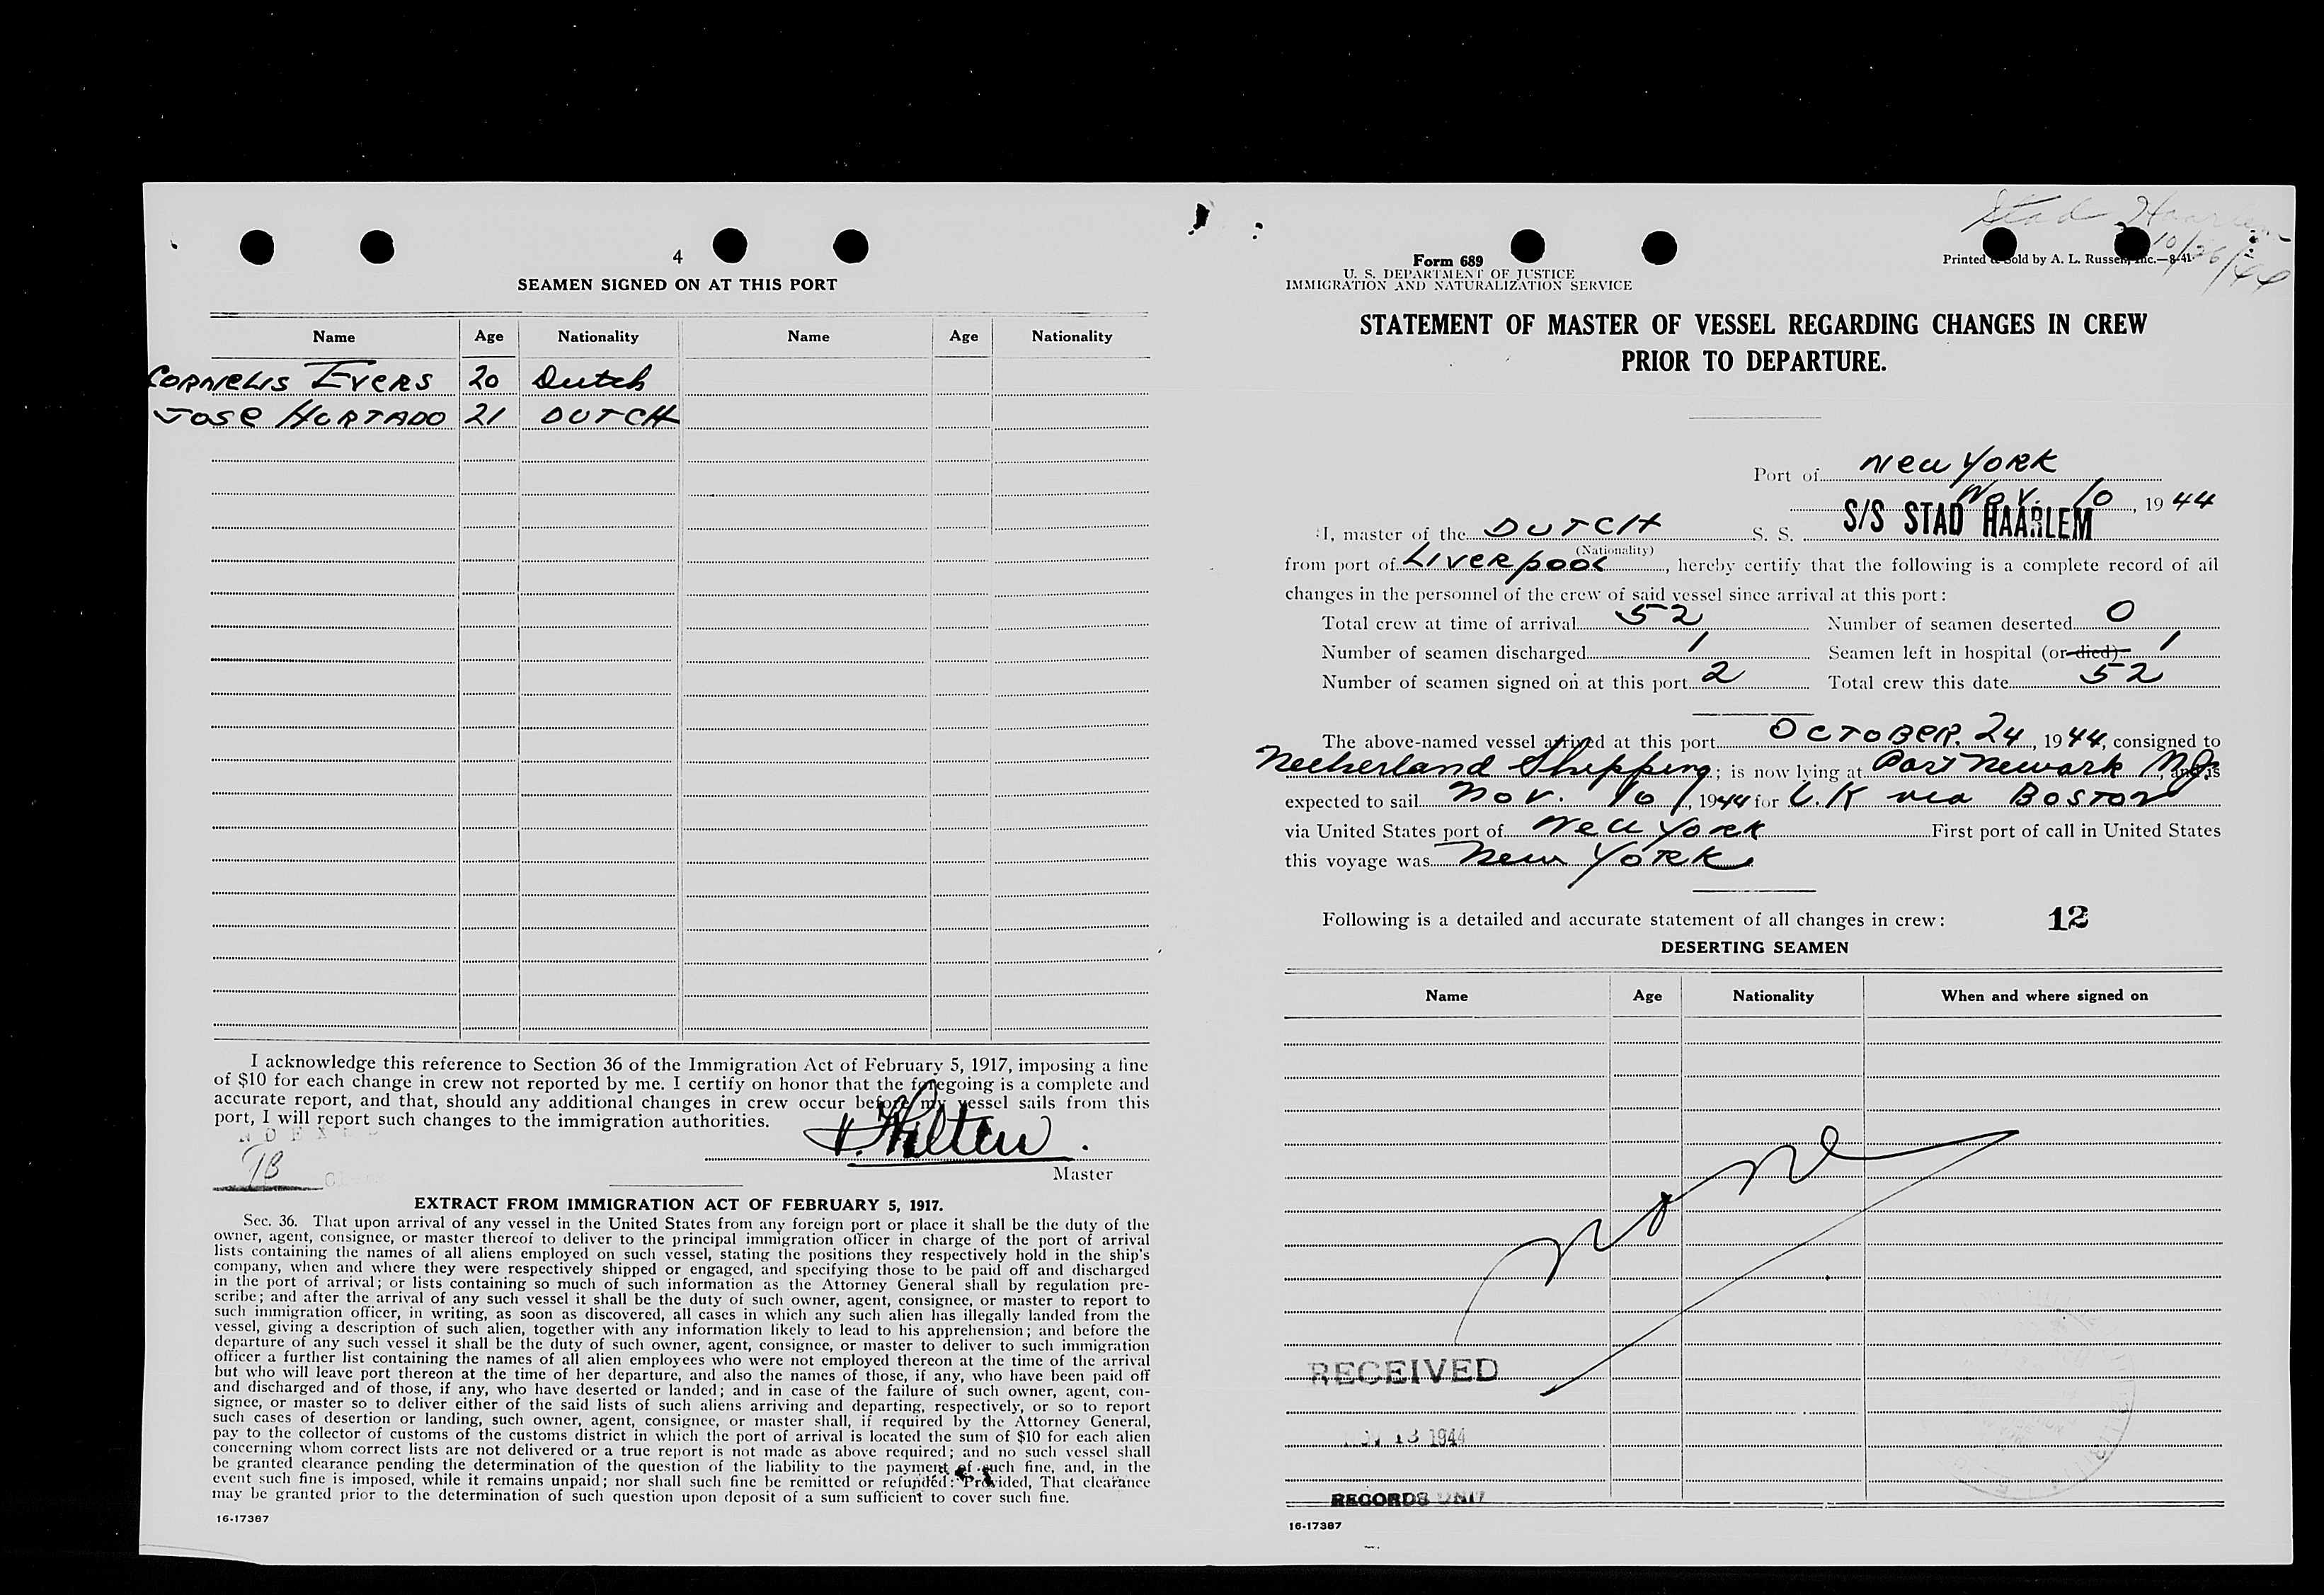 4
SEAMEN SIGNED ON AT THIS PORT
Name Age Nationality Name Age Nationality
CORNELIS EVERS 20 Dutch
JOSE HURTADO 21 DUTCH
I acknowledge this reference to Section 36 of the Immigration Act of February 5, 1917, imposing a fine
of $10 for each change in crew not reported by me. I certify on honor that the foregoing is a complete and
accurate report, and that, should any additional changes in crew occur before my vessel sails from this
port, I will report such changes to the immigration authorities.
Master
EXTRACT FROM IMMIGRATION ACT OF FEBRUARY 5, 1917.
Sec. 36. That upon arrival of any vessel in the United States from any foreign port or place it shall be the duty of the
owner, agent, consignee, or master thereof to deliver to the principal immigration officer in charge of the port of arrival
lists containing the names of all aliens employed on such vessel, stating the positions they respectively hold in the ship's
company, when and where they were respectively shipped or engaged, and specifying those to be paid off and discharged
in the port of arrival; or lists containing so much of such information as the Attorney General shall by regulation pre-
scribe; and after the arrival of any such vessel it shall be the duty of such owner, agent, consignee, or master to report to
such immigration officer, in writing, as soon as discovered, all cases in which any such alien has illegally landed from the
vessel, giving a description of such alien, together with any information likely to lead to his apprehension; and before the
departure of any such vessel it shall be the duty of such owner, agent, consignee, or master to deliver to such immigration
officer a further list containing the names of all alien employees who were not employed thereon at the time of the arrival
but who will leave port thereon at the time of her departure, and also the names of those, if any, who have been paid off
and discharged and of those, if any, who have deserted or landed; and in case of the failure of such owner, agent, con-
signee, or master so to deliver either of the said lists of such aliens arriving and departing, respectively, or so to report
such cases of desertion or landing, such owner, agent, consignee, or master shall, if required by the Attorney General,
pay to the collector of customs of the customs district in which the port of arrival is located the sum of $10 for each alien
concerning whom correct lists are not delivered or a true report is not made as above required; and no such vessel shall
be granted clearance pending the determination of the question of the liability to the payment of such fine, and, in the
event such fine is imposed, while it remains unpaid; nor shall such fine be remitted or refunded: Provided, That clearance
may be granted prior to the determination of such question upon deposit of a sum sufficient to cover such fine.
16-17387
Stad Haarlem
10/26/44
Form 689
U. S. DEPARTMENT OF JUSTICE
IMMIGRATION AND NATURALIZATION SERVICE
Printed & Sold by A. L. Russell, Inc.—8-41
STATEMENT OF MASTER OF VESSEL REGARDING CHANGES IN CREW
PRIOR TO DEPARTURE.
Port of New York
Nov. 10, 1944
I, master of the DUTCH S. S. S/S STAD HAARLEM
(Nationality)
from port of LIVERPOOL, hereby certify that the following is a complete record of all
changes in the personnel of the crew of said vessel since arrival at this port:
Total crew at time of arrival 52 Number of seamen deserted 0
Number of seamen discharged 1 Seamen left in hospital (or died) 1
Number of seamen signed on at this port 2 Total crew this date 52
The above-named vessel arrived at this port OCTOBER. 24, 1944, consigned to
Netherland Shipping; is now lying at Port Newark NJ, and is
expected to sail Nov. 10, 1944 for U.K via BOSTON
via United States port of New York First port of call in United States
this voyage was New York
Following is a detailed and accurate statement of all changes in crew: 12
DESERTING SEAMEN
Name Age Nationality When and where signed on
None
RECEIVED
NOV 13 1944
RECORDS UNIT
16-17387